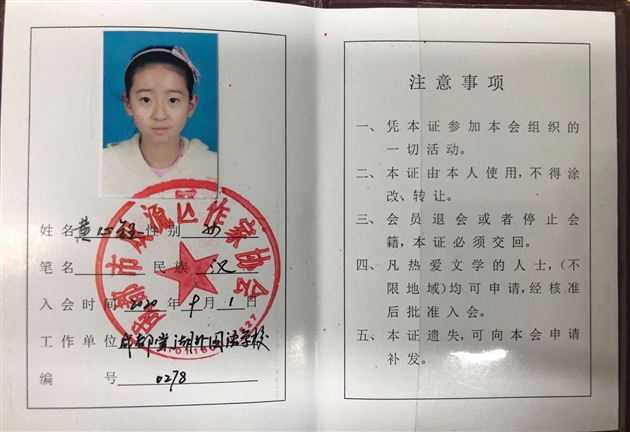 姓名 黄心 性别 女
笔名 民族 汉
入会时间 2020 年 9 月 1 日
工作单位 成都棠湖外国语学校
编号 0278
成都市双流区作家协会
注意事项
一、凭本证参加本会组织的
一切活动。
二、本证由本人使用,不得涂
改、转让。
三、会员退会或者停止会
籍,本证必须交回。
四、凡热爱文学的人士,(不
限地域)均可申请,经核准
后批准入会。
五、本证遗失,可向本会申请
补发。